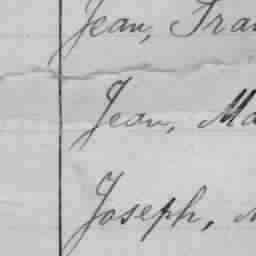 Jean, Fran
Jean, Ma
Joseph,